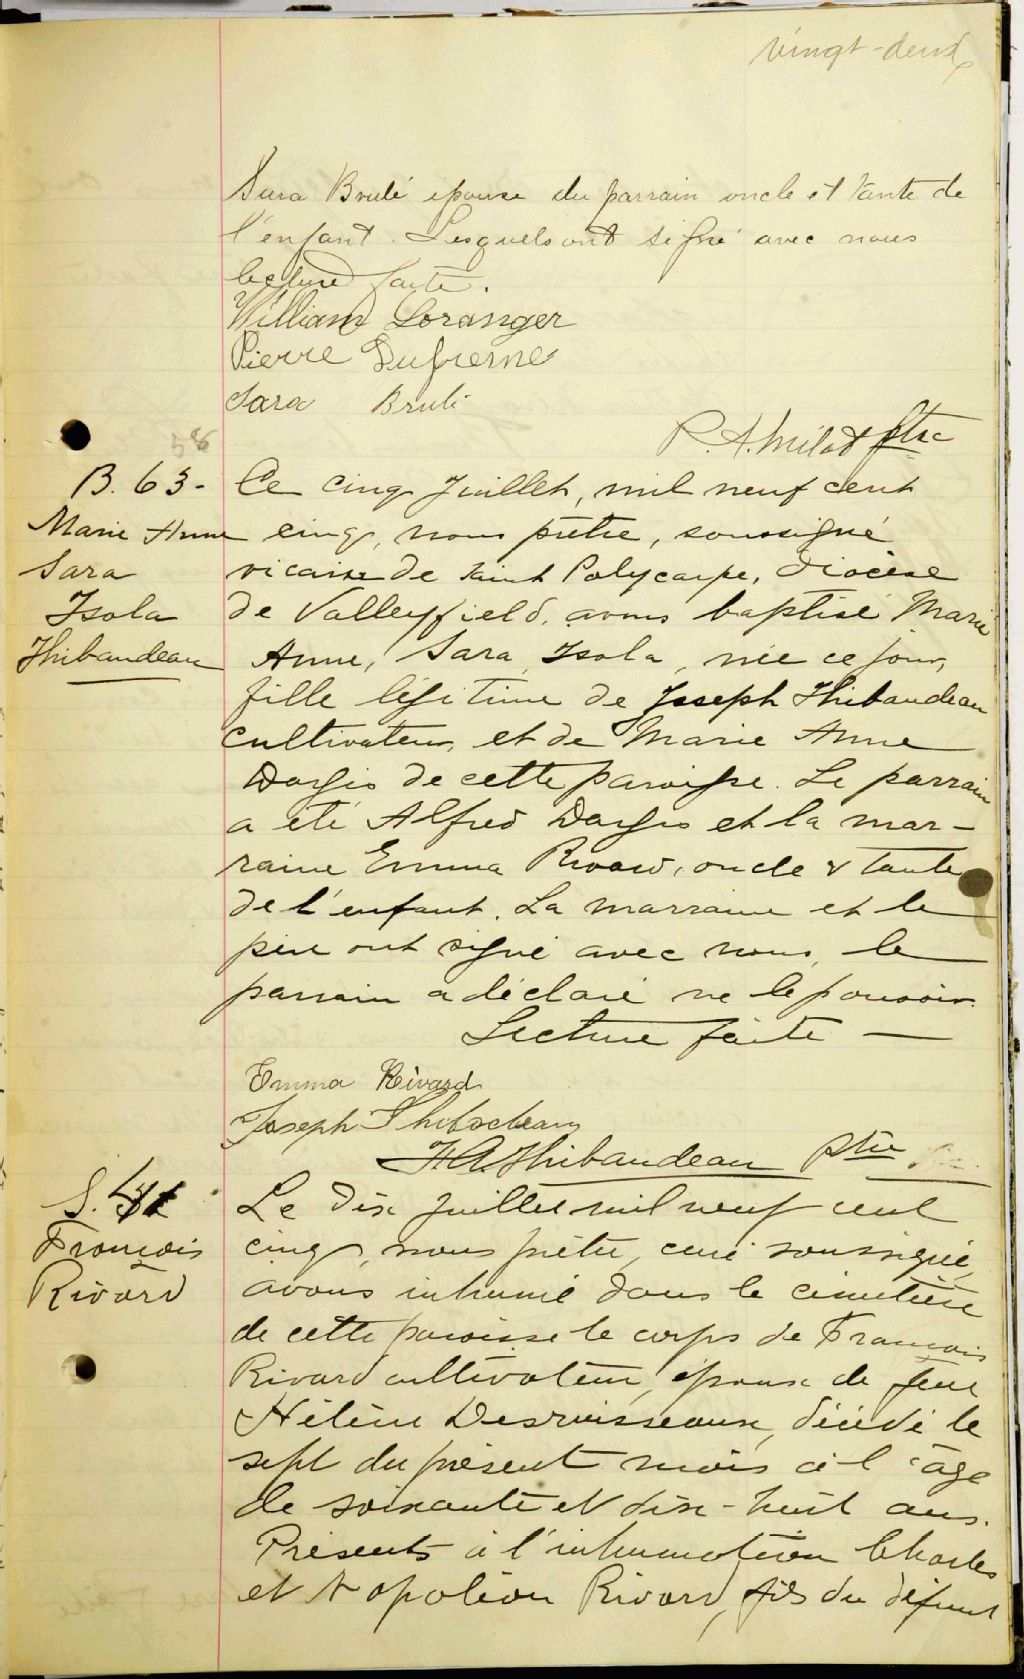 vingt-deux
Sara Brulé épouse du parrain oncle et tante de
l'enfant. Lesquels ont signé avec nous
lecture faite.
William Loranger
Pierre Dufresne
Sara Brulé
P. A. Milot ptre
58
B. 63-
Marie Anne
Sara
Isola
Thibaudeau
Ce cinq Juillet, mil neuf cent
cinq, nous prêtre, soussigné
vicaire de Saint Polycarpe, diocèse
de Valleyfield, avons baptisé Marie
Anne, Sara, Isola, née ce jour,
fille légitime de Joseph Thibaudeau
cultivateur, et de Marie Anne
Dargis de cette paroisse. Le parrain
a été Alfred Dargis et la mar-
raine Emma Rivard, oncle & tante
de l'enfant. La marraine et le
père ont signé avec nous, le
parrain a déclaré ne le pouvoir.
Lecture faite —
Emma Rivard
Joseph Thibodeau
H A Thibaudeau ptre
S.
François
Rivard
Le dix juillet mil neuf cent
cinq, nous prêtre, curé soussigné,
avons inhumé dans le cimetière
de cette paroisse le corps de François
Rivard cultivateur, époux de feue
Hélène Desruisseaux, décédé le
sept du présent mois à l'âge
de soixante et dix-huit ans.
Présents à l'inhumation Charles
et Napoléon Rivard, fils du défunt